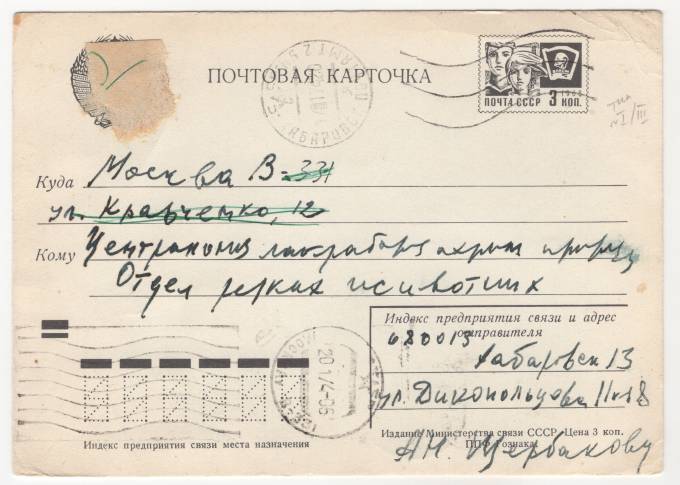 ПОЧТОВАЯ КАРТОЧКА
ПОЧТА СССР 3 КОП.
1966
тип
№I/III
Куда Москва В-331
ул. Кравченко, 12
Кому Центральная лаборатория охраны природы
Отдел редких животных
Индекс предприятия связи и адрес
отправителя
680013
Хабаровск 13
ул. Дикопольцева
А.Н. Щербакову
Индекс предприятия связи места назначения
Издание Министерства связи СССР. Цена 3 коп.
ППФ Гознака.
МОСКВА
20.1.74-06
ХАБАРОВСК